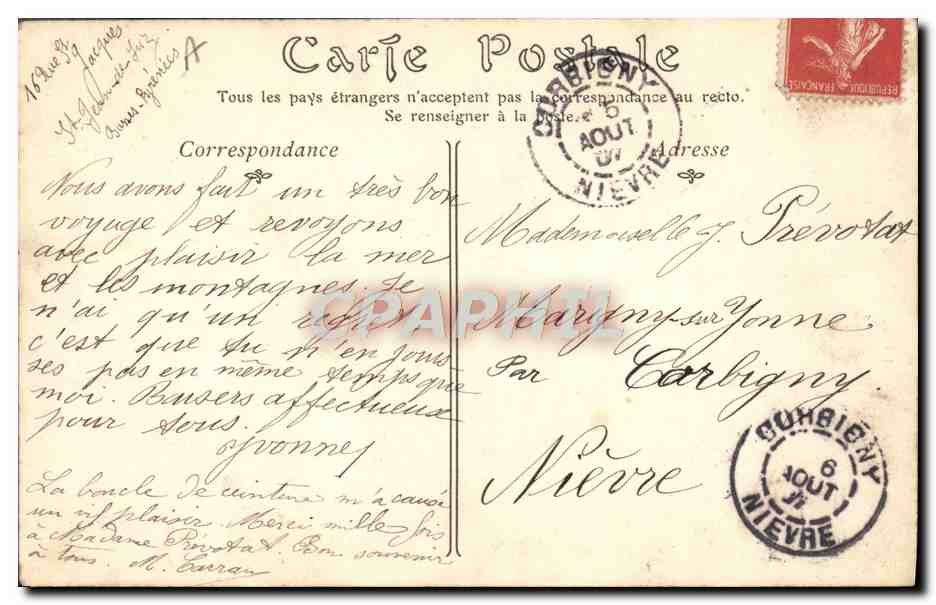 16 Rue St Jacques
St Jean de Luz
Basses-Pyrénées
A
Carte Postale
Tous les pays étrangers n'acceptent pas la correspondance au recto.
Se renseigner à la poste.
Correspondance
Nous avons fait un très bon
voyage et revoyons
avec plaisir la mer
et les montagnes. Je
n'ai qu'un regret
c'est que tu n'en jouis-
ses pas en même temps que
moi. Baisers affectueux
pour tous.
Yvonne
La boucle de ceinture m'a causé
un vif plaisir. Merci mille fois
à Madame Prévotat. Bon souvenir
à tous. M. Carrau
Adresse
Mademoiselle J. Prévotat
Marigny-sur-Yonne
Par Corbigny
Nièvre
REPUBLIQUE FRANÇAISE
CORBIGNY
6
AOUT
07
NIEVRE
CORBIGNY
6
AOUT
NIEVRE
CPAPHIL